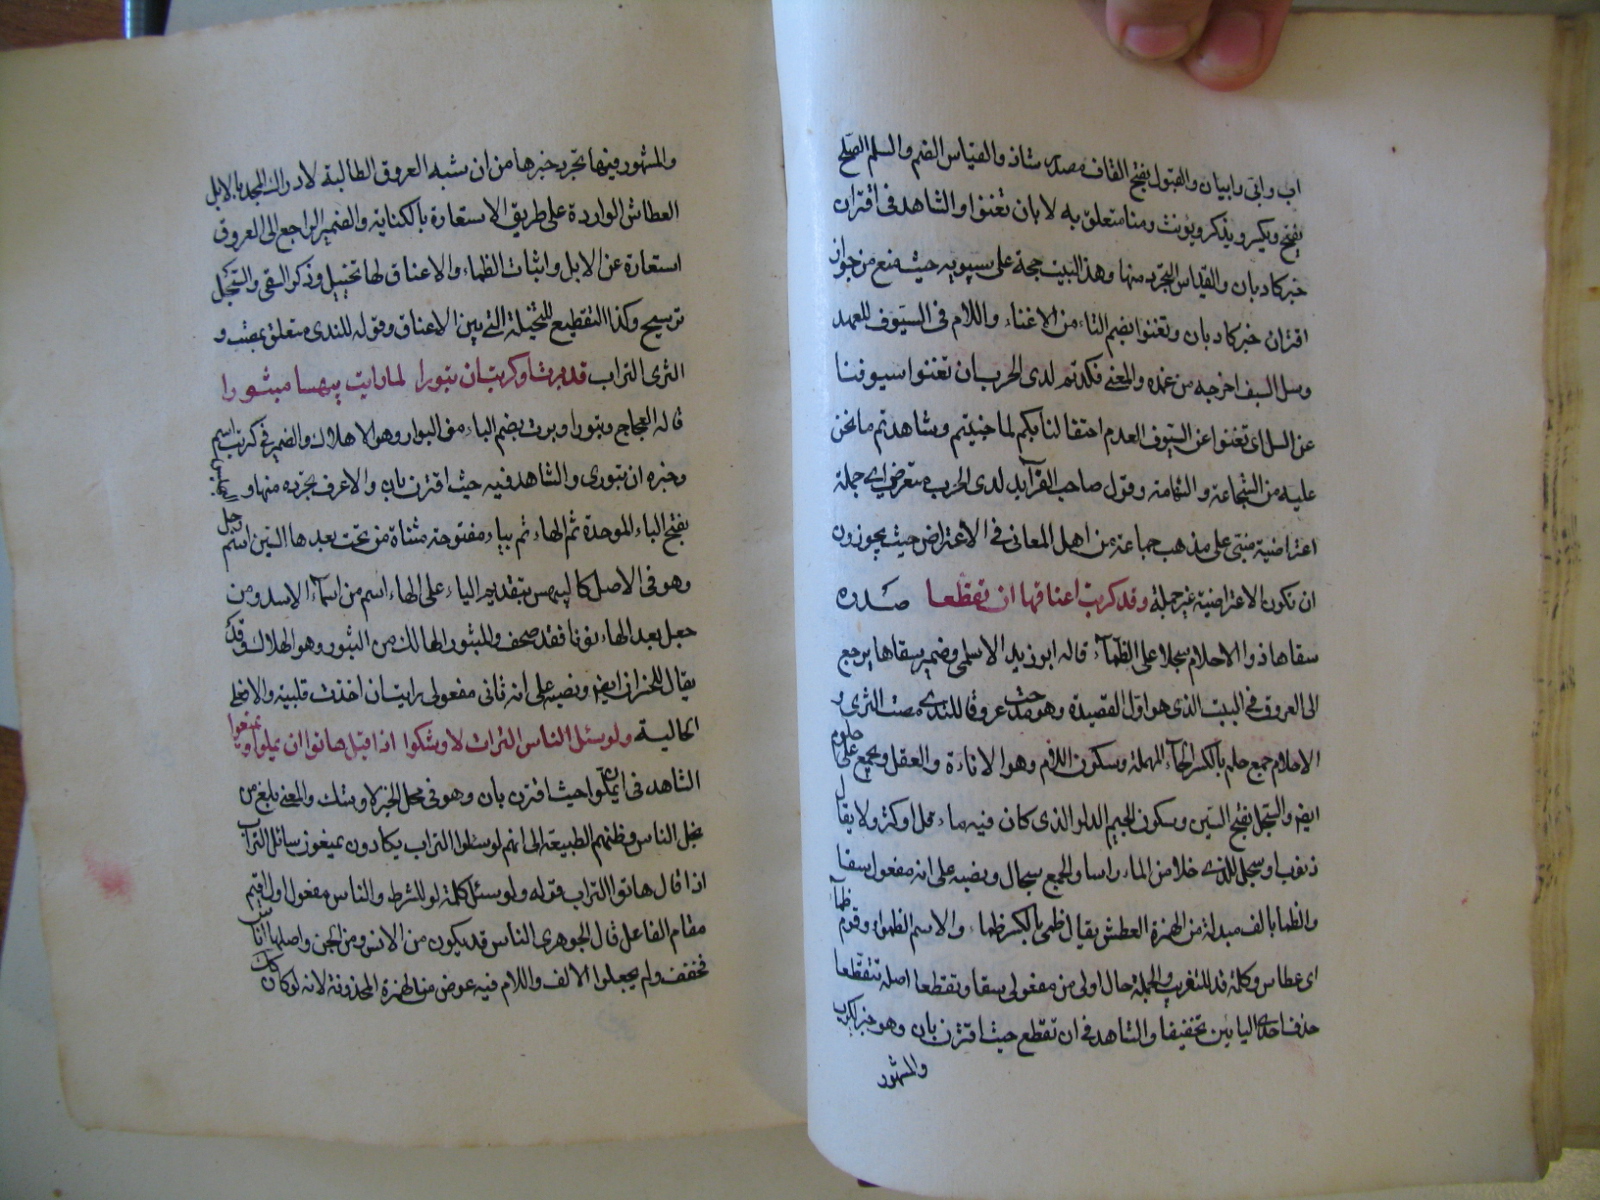 اب وابى وابيان والقبول بفتح القاف مصدر شاذ والقياس الضم والسلم الصلح
يفتح ويكسر ويذكر ويؤنث ومنا متعلق به لا بان تغنوا والشاهد فى اقتران
خبر كاد بان والقياس التجرد منها وهذا البيت حجة على سيبويه حيث منع من جواز
اقتران خبر كاد بان وتغنوا بضم التاء من الاغناء واللام فى السيوف للعهد
وسل السيف اخرجه من غمده والمعنى فكدتم لدى الحرب ان تغنوا سيوفنا
عن السل اى تغنوا عن السيوف لعدم احتفالنا بكم لما جنيتم وشاهدتم ما نحن
عليه من الشجاعة والثقامة وقول صاحب الفرآيد لدى الحرب متعرض اى جملة
اعتراضية مبنى على مذهب جماعة من اهل المعانى فى الاعتراض حيث يجوزون
ان تكون الاعتراضية غير جملة وقد كربت اعناقها ان تقطعا صدره
سقاها ذوالاحلام سجلا على الظمآ قاله ابو زيد الاسلمى وضمير سقاها يرجع
الى العروق فى البيت الذى هو اول القصيدة وهو مدحت عروقا للندى مصت الثرى و
الاحلام جمع حلم بالكسر الحآء المهملة وسكون اللام وهو الاناءة والعقل ويجمع على حلوم
ايضا والسجل بفتح السين وسكون الجيم الدلو الذى كان فيه ماء قل او كثر ولا يقال
ذنوب او سجل للذى خلا من الماء راسا والجمع سجال ونصبه على انه مفعول سقا
والظما بالف مبدلة من الهمزة العطش يقال ظمئ بالكسر ظماء والاسم الظموء وقوم ظمآء
اى عطاس وكلمة قد للتقريب والجملة حال اولى من مفعولى سقا وتقطعا اصله تتقطعا
حذف احدى اليائين تخفيفا والشاهد فى ان تقطع حيث اقترن بان وهو خبر لكرب
والمشهور
والمشهور فيها تجرد خبرها من ان شبه العروق الطالبة لادراك المجد بالابل
العطاش الواردة على طريق الاستعارة بالكناية والضمير الراجع الى العروق
استعارة عن الابل واثبات الظماء والاعناق لها تخييل وذكر السقى والسجل
ترسيح وكذا التقطيع للتخيلة التى بين الاعناق وقوله للندى متعلق بمصت و
الثرى التراب قد برت او كربت ان تبورا لما رايت بيهسا مبثورا
قاله العجاج وتبورا وبرت بضم الباء من البوار وهو الاهلاك والضمير فى كربت اسم
وخبره ان تبورى والشاهد فيه حيث اقترن بان والاعرف تجرده منها و
بفتح الباء الموحدة ثم الهاء ثم بياء مفتوحة مثناة من تحت بعدها السين اسم رجل
وهو فى الاصل كالبيهس بتقديم الياء على الهاء اسم من اسمآء الاسد ومن
جعل بعد الهاء نونا فقد صحف والمبثور الهالك من الثبور وهو الهلاك وقد
يقال للخسران ايضا ونصبه على انه ثانى مفعولى رايت ان اخذت قلبية والا فعلى
الحالية ولو سئل الناس التراب لاوشكوا اذا قيل هاتوا ان يملوا ويمنعوا
الشاهد فى ان يملوا حيث اقترن بان وهو فى محل الخبر لاوشك والمعنى بلغ من
بخل الناس وظنهم الطبيعة الى انهم لو سئلوا التراب يكادون يمنعون سائل التراب
اذا قال هاتوا التراب قوله ولو سئل كلمة لو للشرط والناس مفعول اول اقيم
مقام الفاعل قال الجوهرى الناس قد يكون من الانس ومن الجن واصلها اناس
فخفف ولم يجعلوا الالف واللام فيه عوض من الهمزة المحذوفة لانه لو كان كك